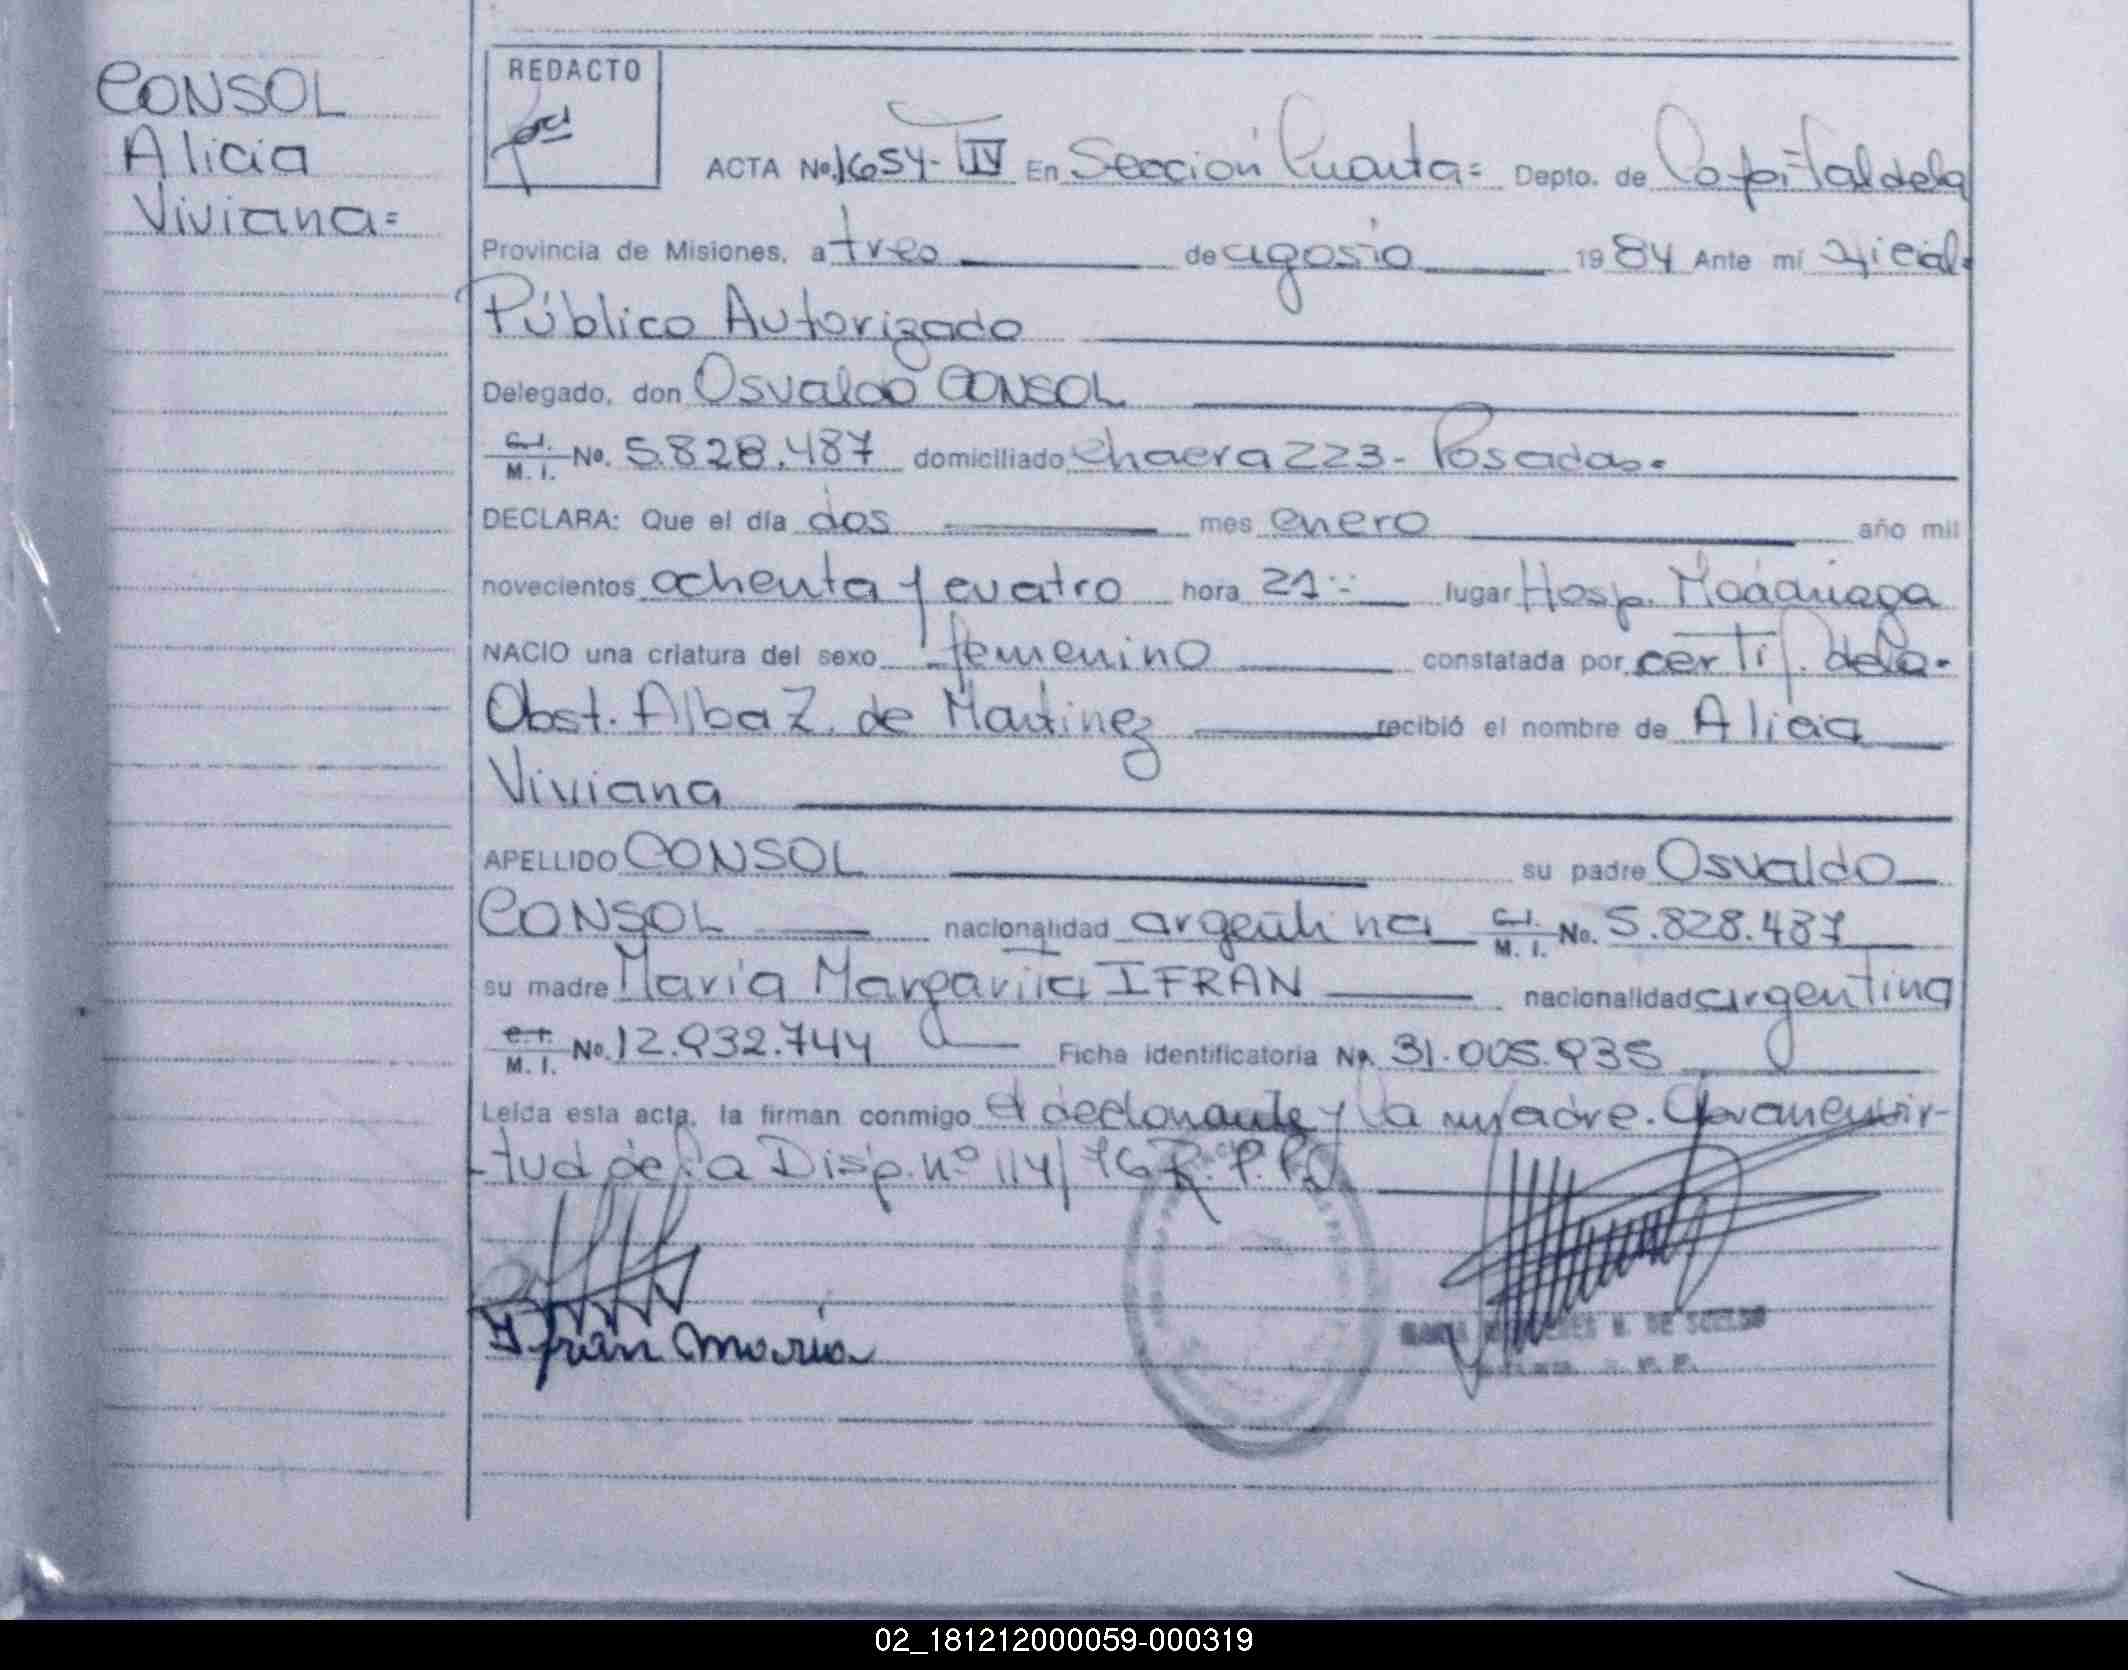 CONSOL
Alicia
Viviana=
REDACTO
ACTA No. 1654- IV En Sección Cuarta= Depto. de Capital dela
Provincia de Misiones, a tres de agosto 1984 Ante mí Oficial
Público Autorizado
Delegado, don Osvaldo CONSOL
C.I. M. I. No. 5.828.487 domiciliado chacra 223- Posadas.
DECLARA: Que el día dos mes enero año mil
novecientos ochenta y cuatro hora 21: lugar Hosp. Madariaga
NACIO una criatura del sexo femenino constatada por certif. dela
Obst. Alba Z. de Martinez recibió el nombre de Alicia
Viviana
APELLIDO CONSOL su padre Osvaldo
CONSOL nacionalidad argentina C.I. M. I. No. 5.828.487
su madre María Margarita IFRAN nacionalidad argentina
C.I. M. I. No. 12.932.744 Ficha identificatoria No. 31.005.935
Leída esta acta, la firman conmigo el declarante y la madre.
tud de la Disp. nº 114/76 R.P.P.
Ifran María
DE
02_181212000059-000319